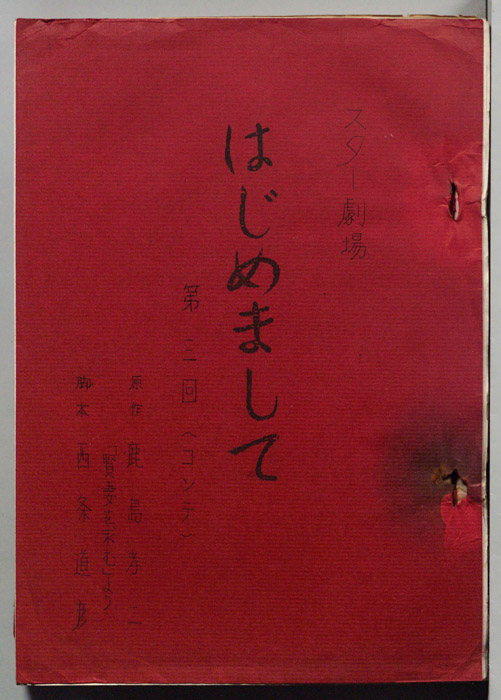 スター劇場
はじめまして
第三回(コンテ)
原作 鹿島孝二
「賢妻を求む」より
脚本 西条道彦